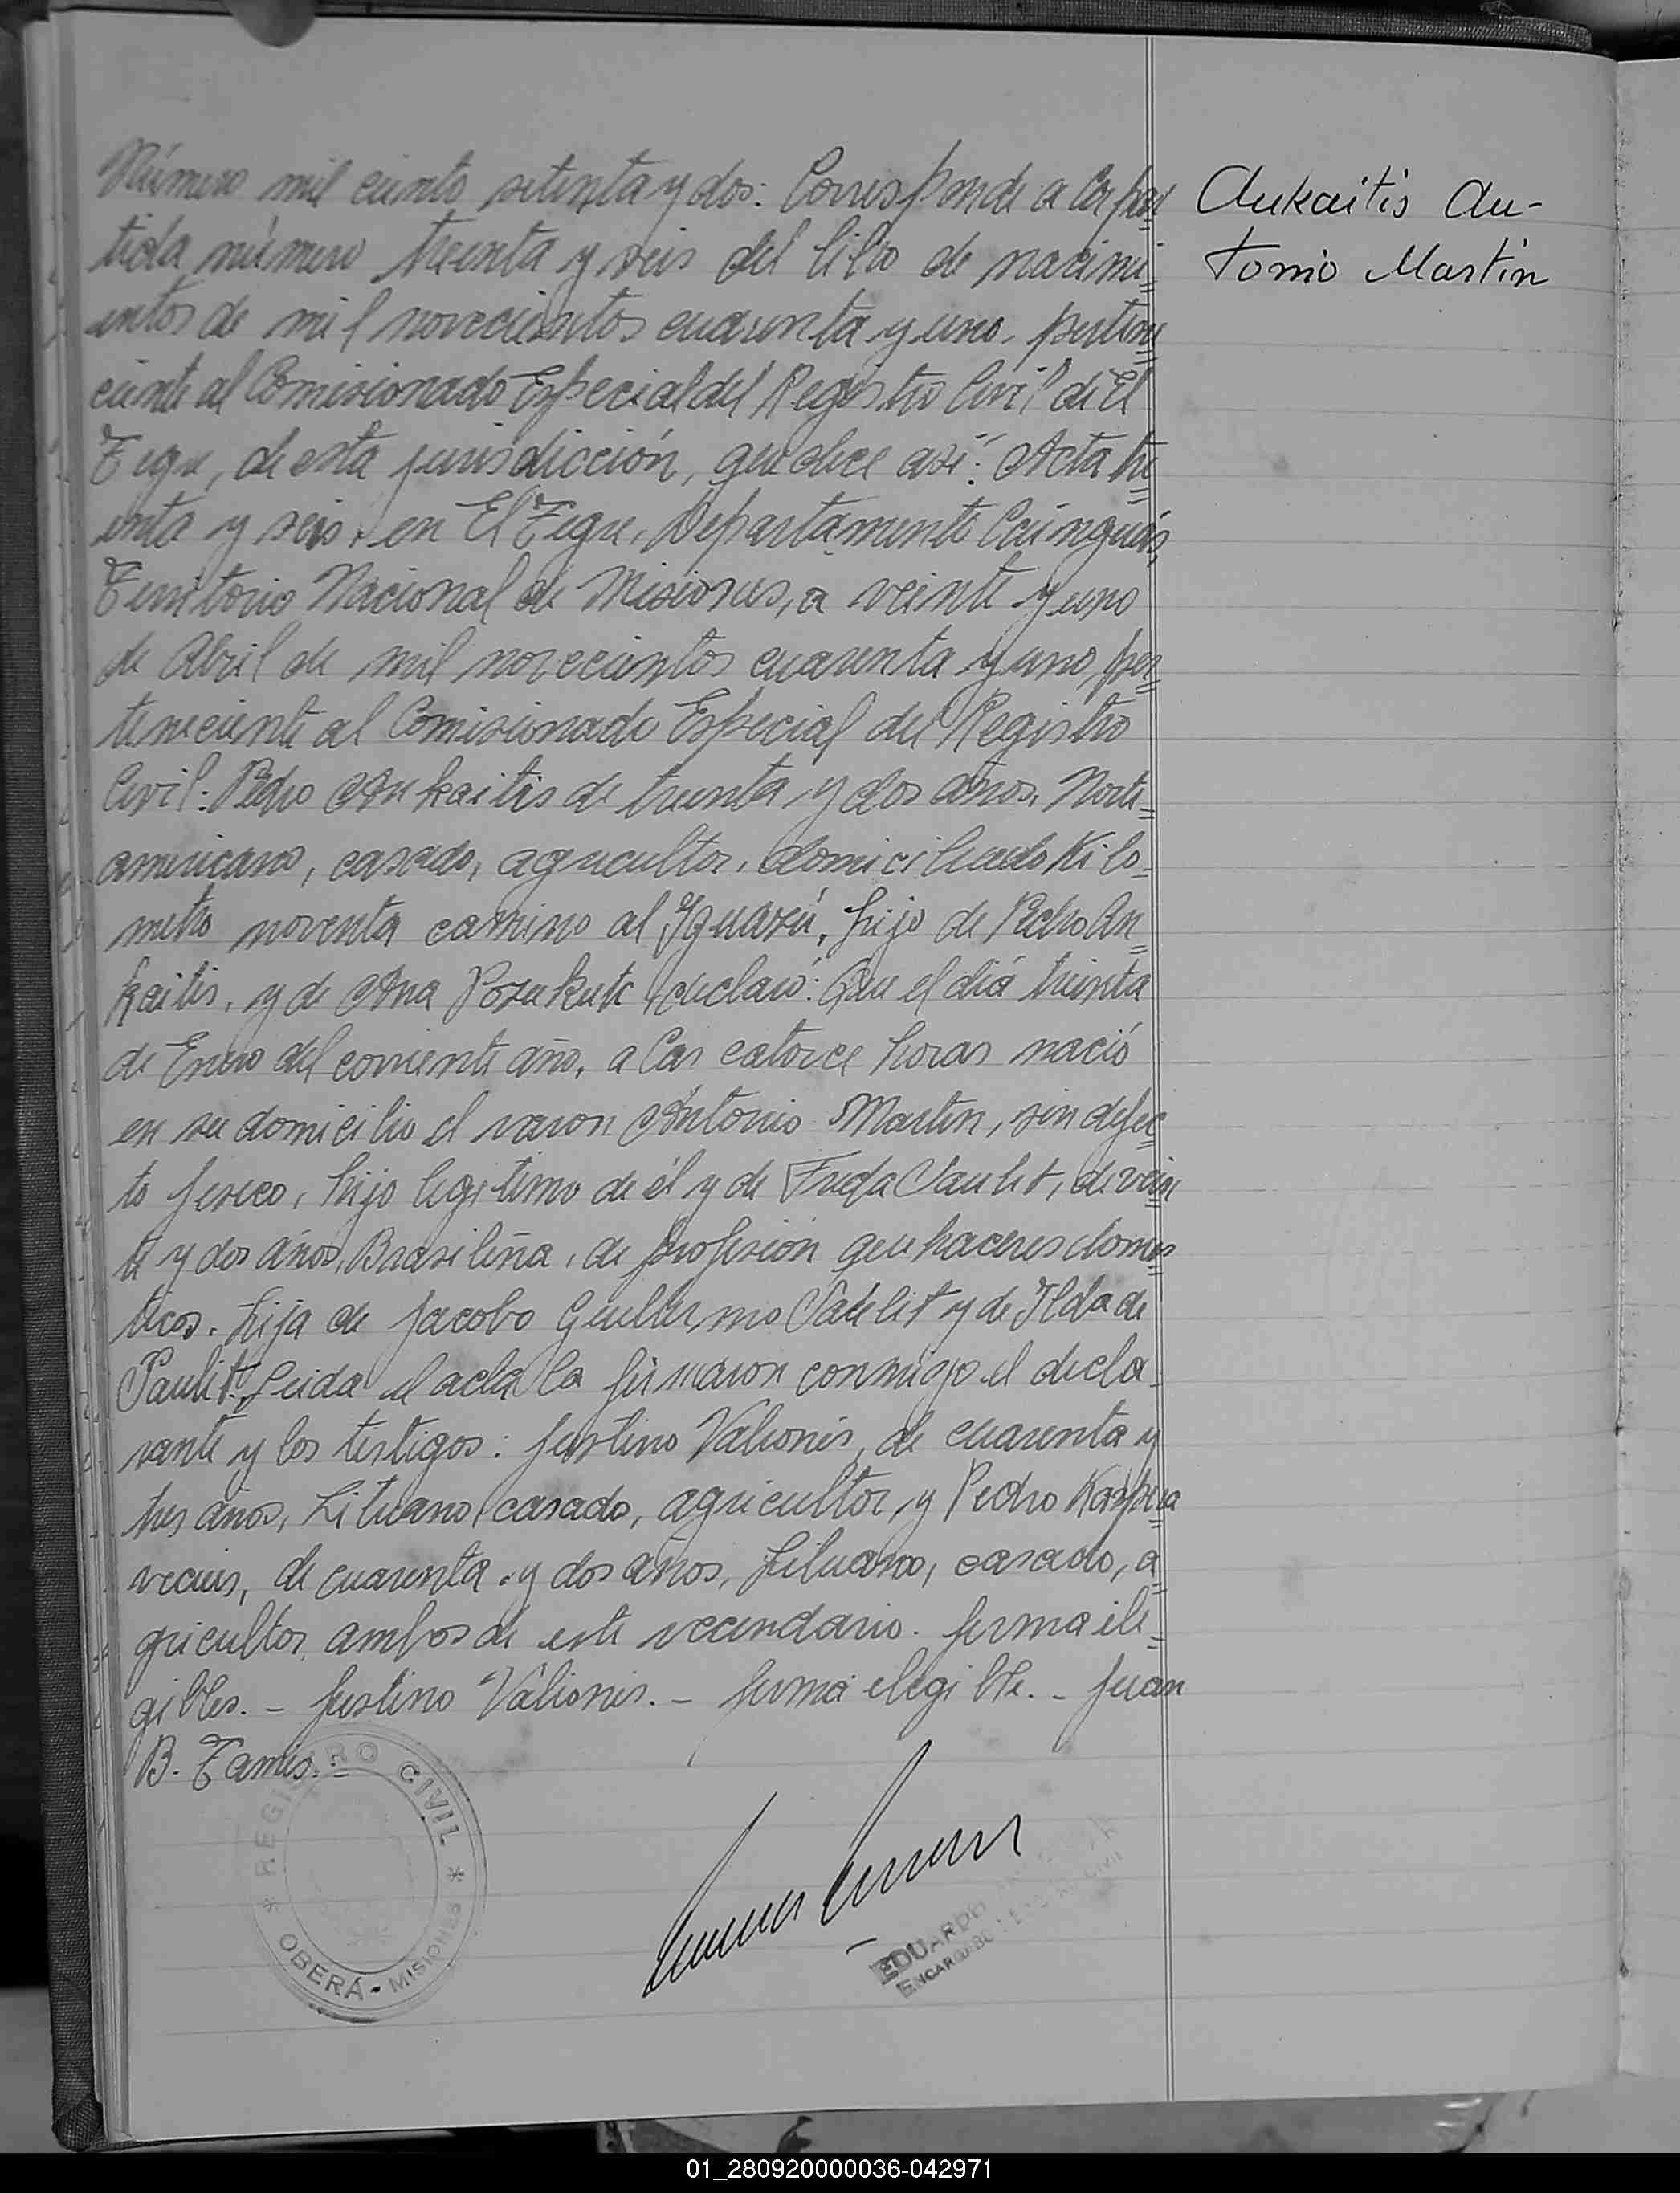 Número mil ciento setenta y dos: Corresponde a la par
tida número treinta y seis del libro de nacimi=
entos de mil novecientos cuarenta y uno, pertene=
ciente al Comisionado Especial del Registro Civil de El
Tigre, de esta jurisdicción, que dice así: Acta tre=
inta y seis, en El Tigre, Departamento Cainguás,
Territorio Nacional de Misiones, a veinte y uno
de Abril de mil novecientos cuarenta y uno, per=
teneciente al Comisionado Especial del Registro
Civil: Pedro Ankaitis de treinta y dos años, Norte=
americano, casado, agricultor, domiciliado Kilo=
metro noventa camino al Iguazú, hijo de Pedro An=
kaitis, y de Ana declaró: Que el día treinta
de Enero del corriente año, a las catorce horas nació
en su domicilio el varon Antonio Martin, sin defec=
to fisico, hijo legitimo de él y de Frida Paulit, de vein
te y dos años, Brasileña, de profesión quehaceres domes=
ticos. hija de Jacobo Guillermo Paulit y de Ilda de
Paulit. Leida el acta la firmaron conmigo el decla=
rante y los testigos: Justino Valionis, de cuarenta y
tres años, Lituano, casado, agricultor, y Pedro Kaspera=
vecius, de cuarenta y dos años, Lituano, casado, a=
gricultor, ambos de este vecindario. firma ile=
gibles. - Justino Valionis. - firma elegible. - Juan
B. Tamis. -
Ankaitis An-
tonio Martin
REGISTRO CIVIL
* OBERÁ - MISIONES *
EDUARDO
ENCARGADO
01_280920000036-042971